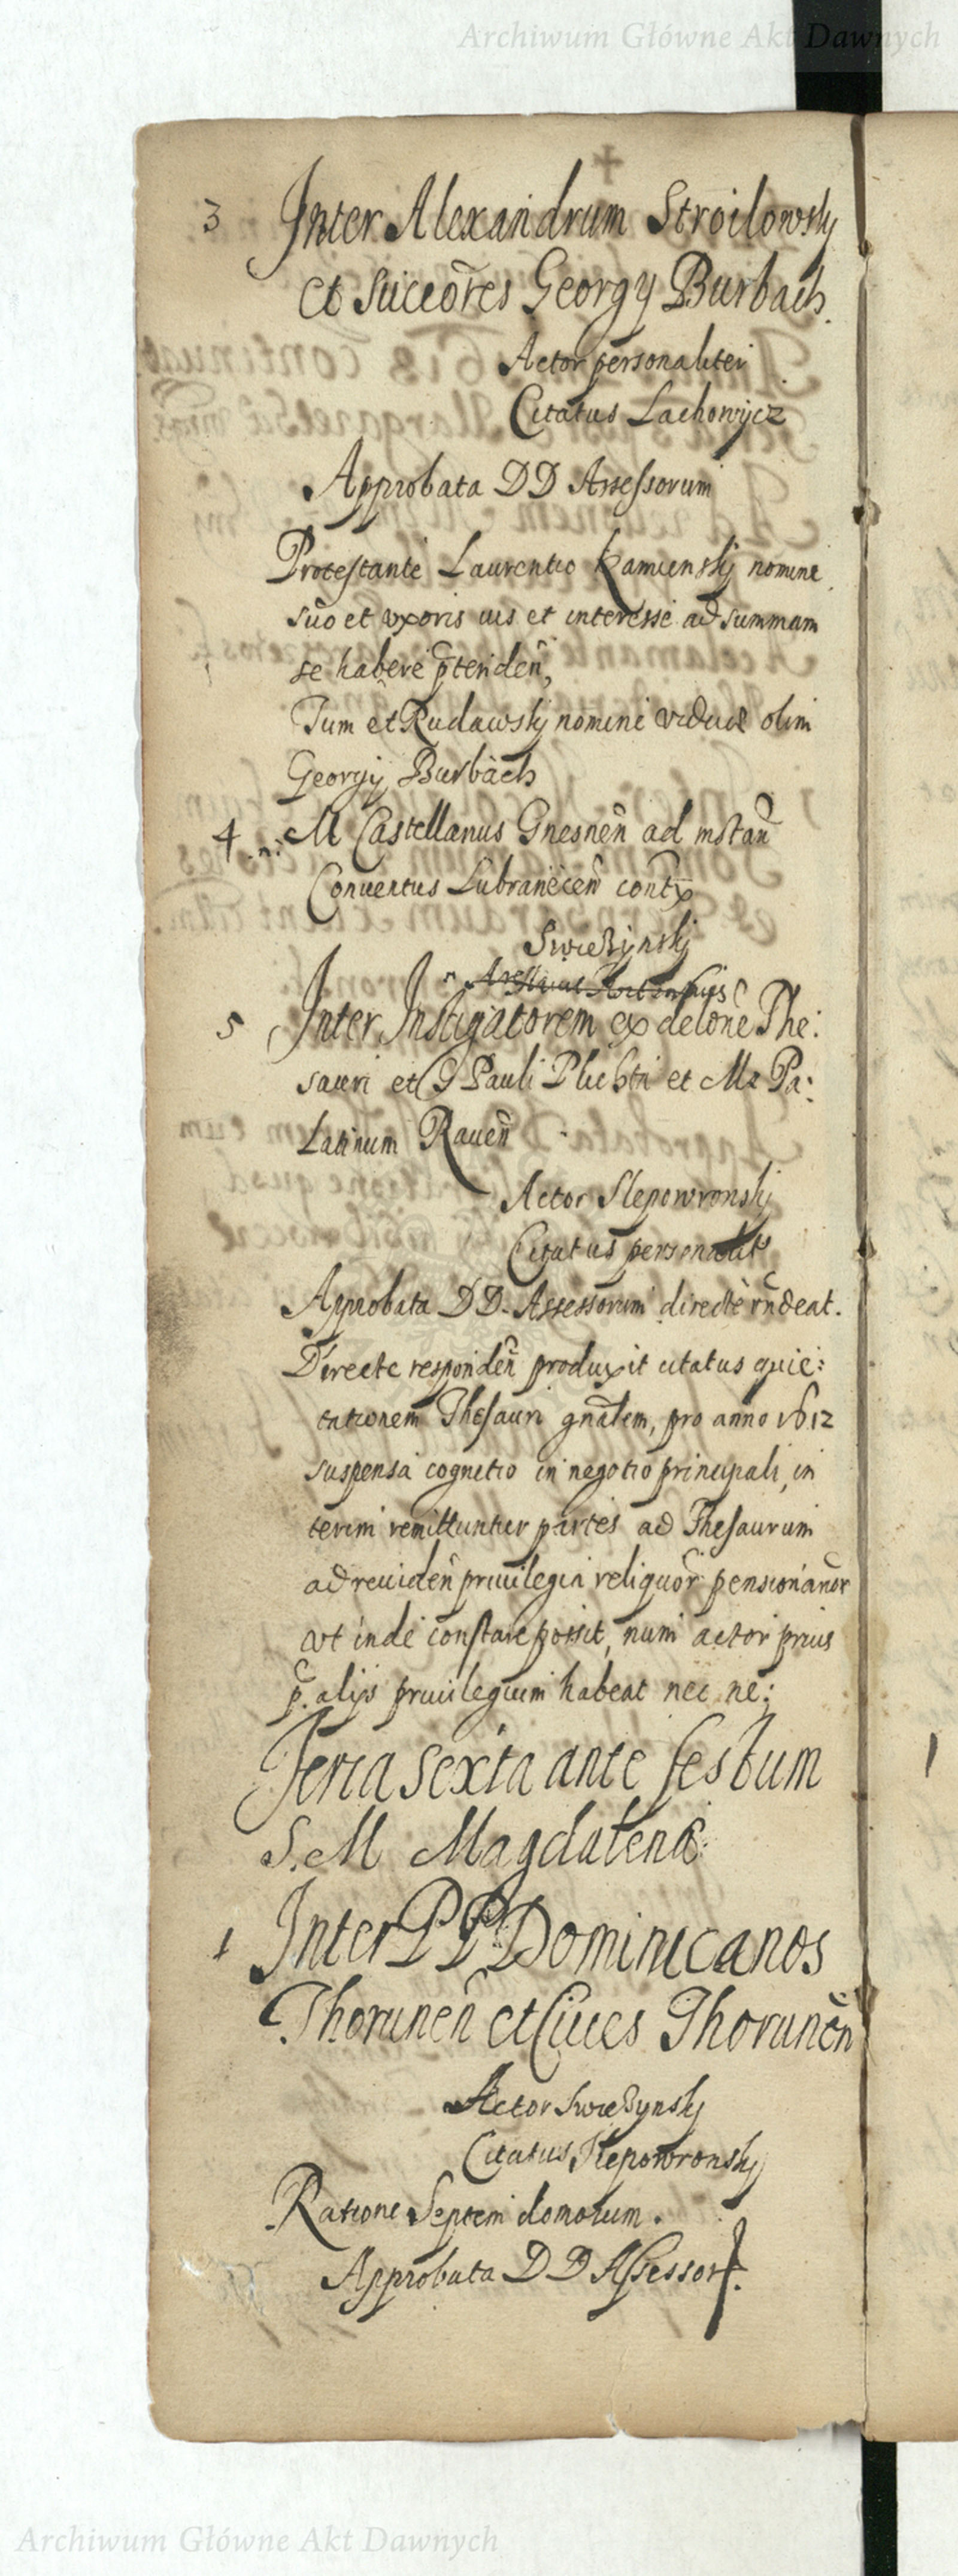 Archiwum Główne Akt Dawnych
3 Inter Alexandrum Stroilowsky
et succōres Georgy Burbach
Actor personaliter
Citatus Lachowicz
Approbata DD Assessorum
Protestante Laurentio Kamienskj nomine
suo et uxoris ius et interesse ad summam
se habere p̄tendeñ,
Tum et Rudawskj nomine viduæ olim
Georgij Burbach
4 M Castellanus Gnesneñ ad instañ
Conuentus Lubraneceñ
Swieżynskj
5 Inter Instigatorem ex delōne The:
sauri et G Pauli Plichta et M Pa:
latinum Raueñ
Actor Slepowronskj
Citatus personalit
Approbata DD. Assessorum directe rñdeat.
Directe respondeñ produxit citatus quie:
tationem Thesauri gñalem, pro anno 1612
suspensa cognitio in negotio principali, in
terim remittuntur partes ad Thesaurum
ad reuideñ priuilegia reliquor pensionarior
vt inde constare possit, num actor prius
p. alijs priuilegium habeat nec ne;
Feria sexta ante festum
S. M Magdalenæ
1 Inter PP Dominicanos
Thoruneñ et Ciues Thoruneñ
Actor Swieżynskj
Citatus Slepowronskj
Ratione Septem domorum.
Approbata DD Assessor.
Archiwum Główne Akt Dawnych